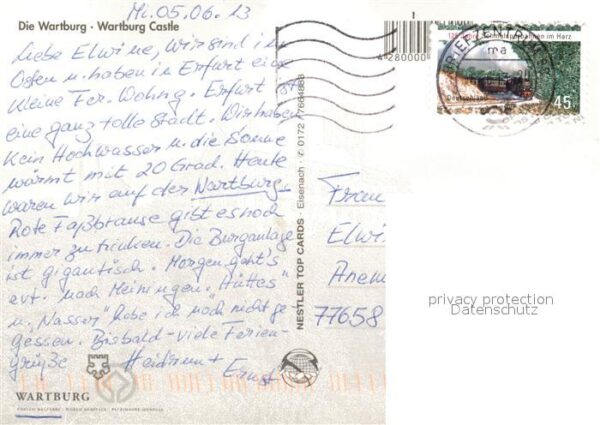 Mi. 05.06.13
Die Wartburg · Wartburg Castle
Liebe Elwine, wir sind im
Osten u. haben in Erfurt eine
kleine Fer. Wohng. Erfurt ist
eine ganz tolle Stadt. Wir haben
kein Hochwasser u. die Sonne
wärmt mit 20 Grad. Heute
waren wir auf der Wartburg.
Rote Faßbrause gibt es noch
immer zu trinken. Die Burganlage
ist gigantisch. Morgen geht's
evt. nach Meiningen. "Hüttes"
u. "Nasser" habe ich noch nicht ge
gessen. Bis bald - viele Ferien-
grüße Heidrun +
Ernst
WARTBURG
NESTLER TOP CARDS · Eisenach · ✆ 0172
1
4280000
BRIEFZENTRUM
ma
im Harz
Deutschland
45
Frau
Elwi
Anem
77658
privacy protection
Datenschutz